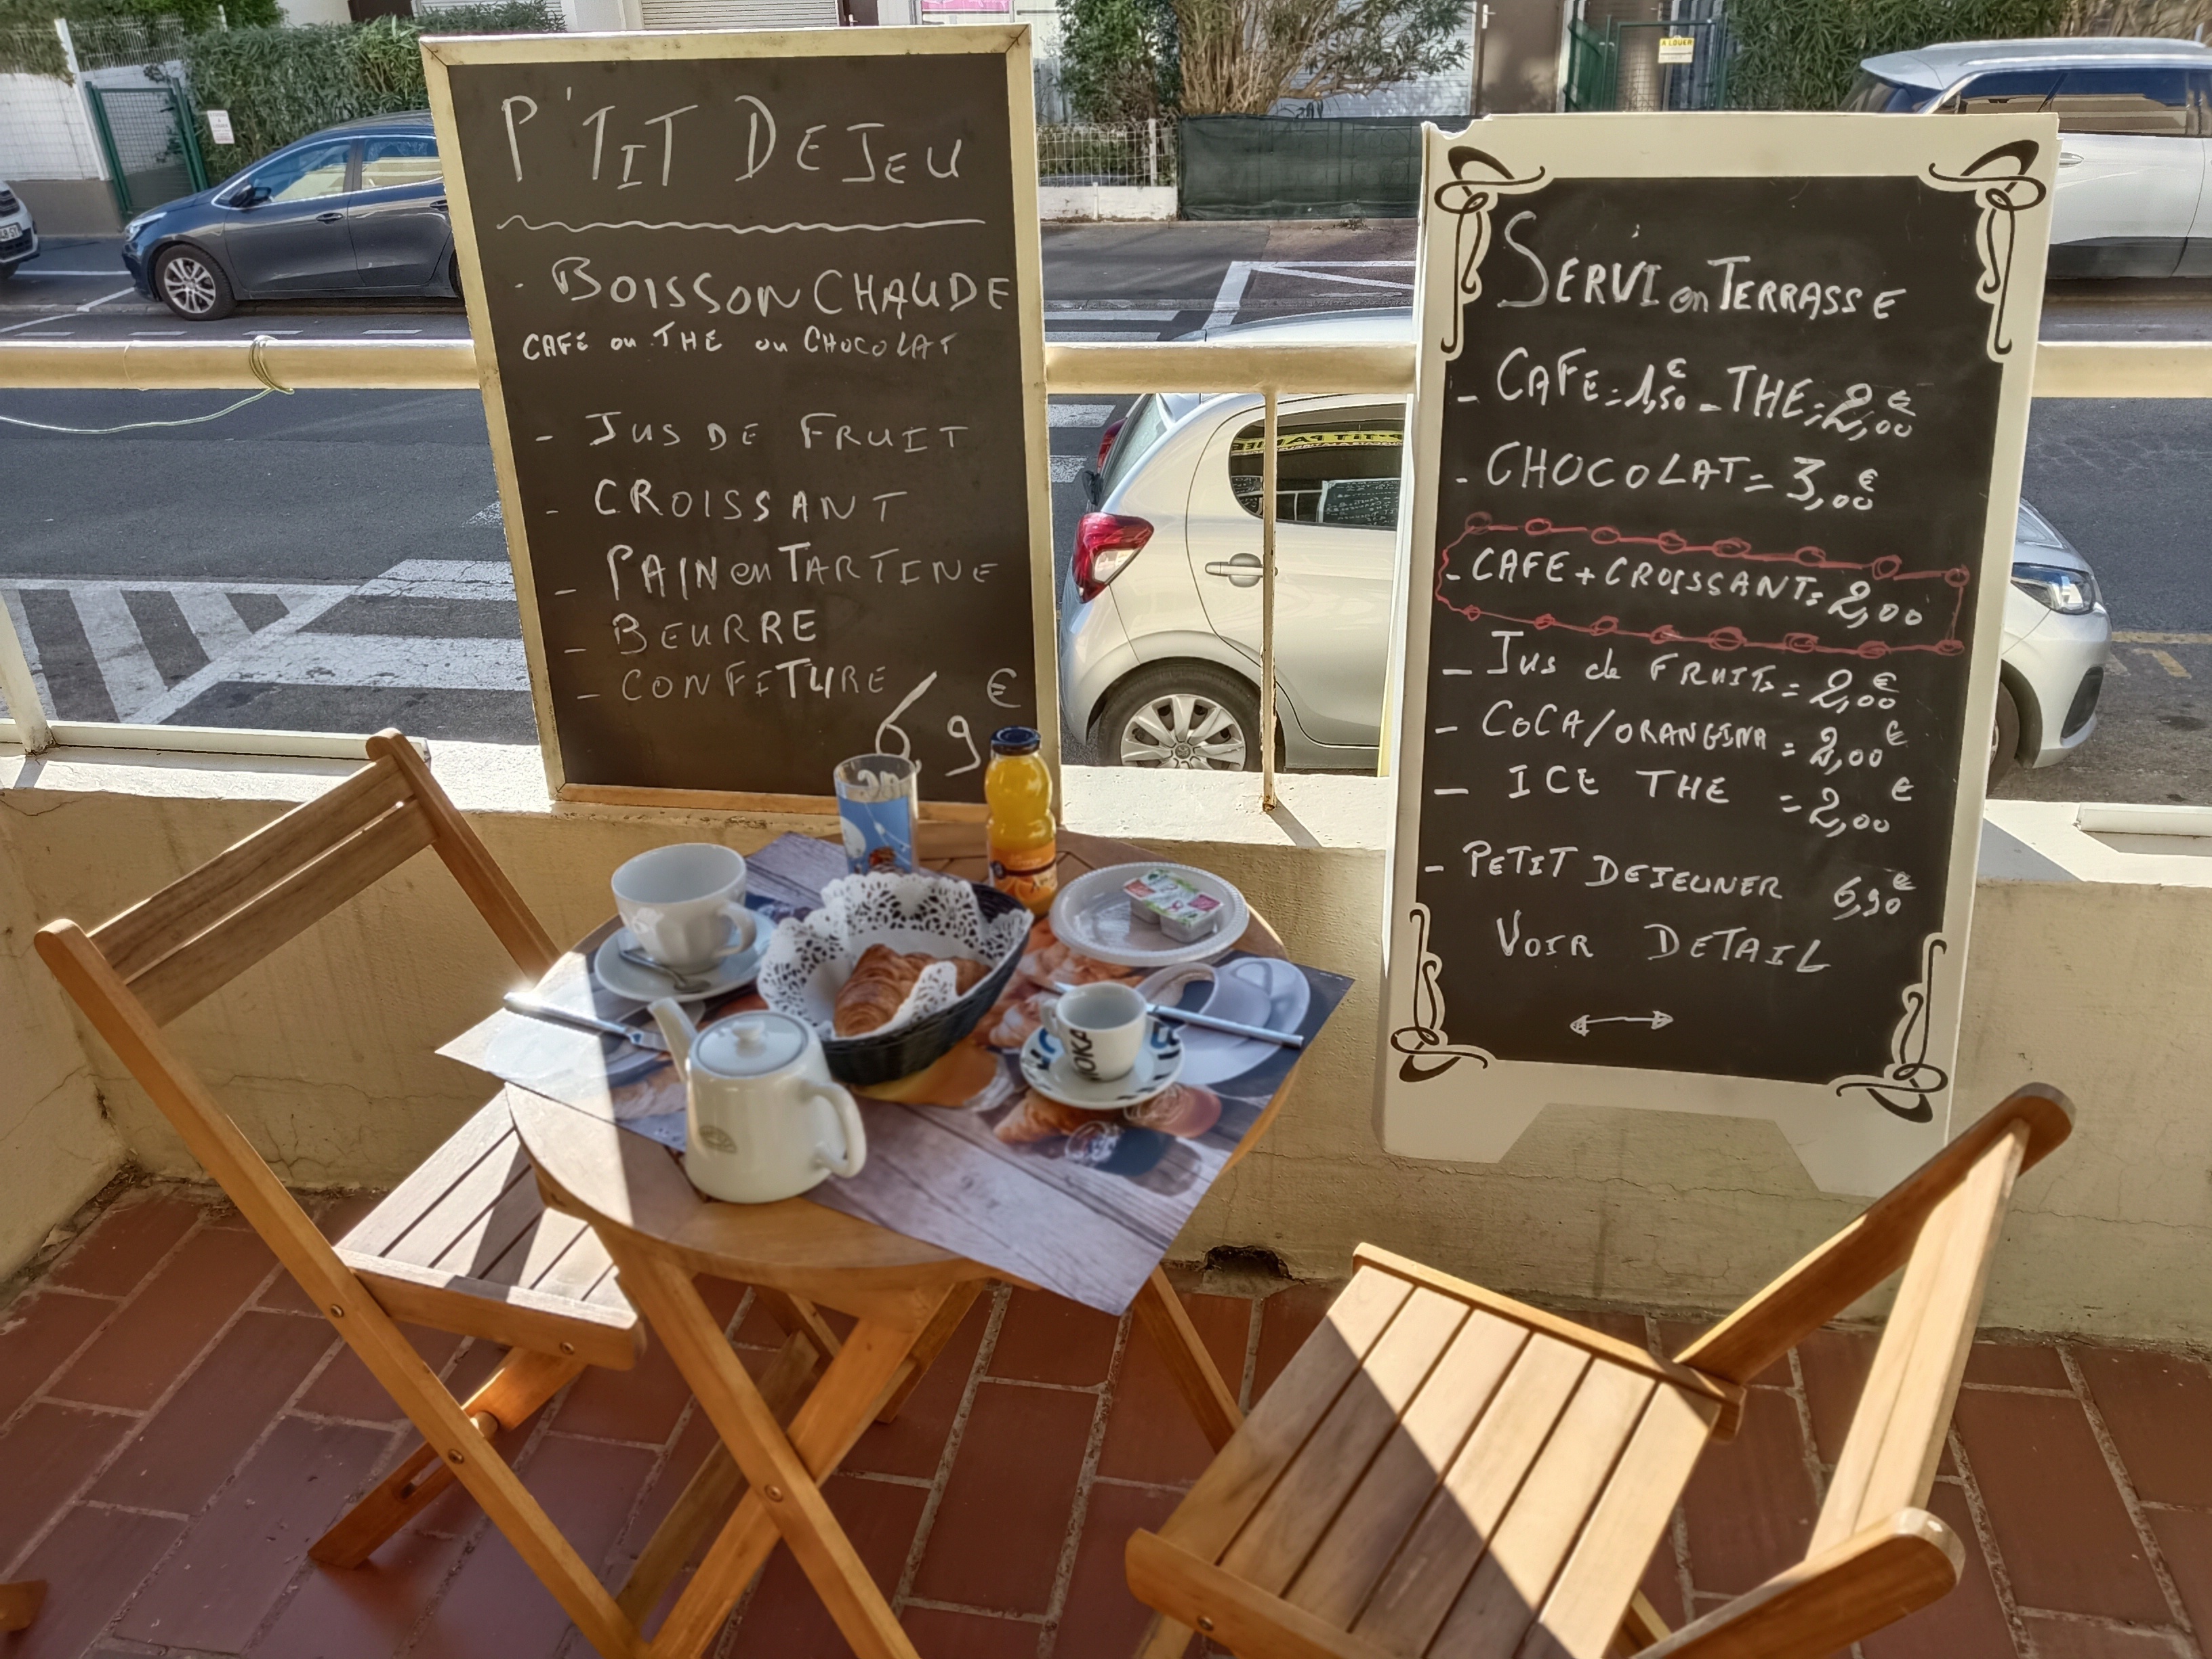 P'TIT DEJEU
- BOISSON CHAUDE
CAFE ou THE ou CHOCOLAT
- JUS DE FRUIT
- CROISSANT
- PAIN en TARTINE
- BEURRE
- CONFITURE
6,9 €
SERVI en TERRASSE
- CAFE = 1,50 € - THE = 2,00 €
- CHOCOLAT = 3,00 €
- CAFE + CROISSANT = 2,00
- JUS de FRUITS = 2,00 €
- COCA/ORANGINA = 2,00 €
- ICE THE = 2,00 €
- PETIT DEJEUNER 6,90 €
VOIR DETAIL
A LOUER